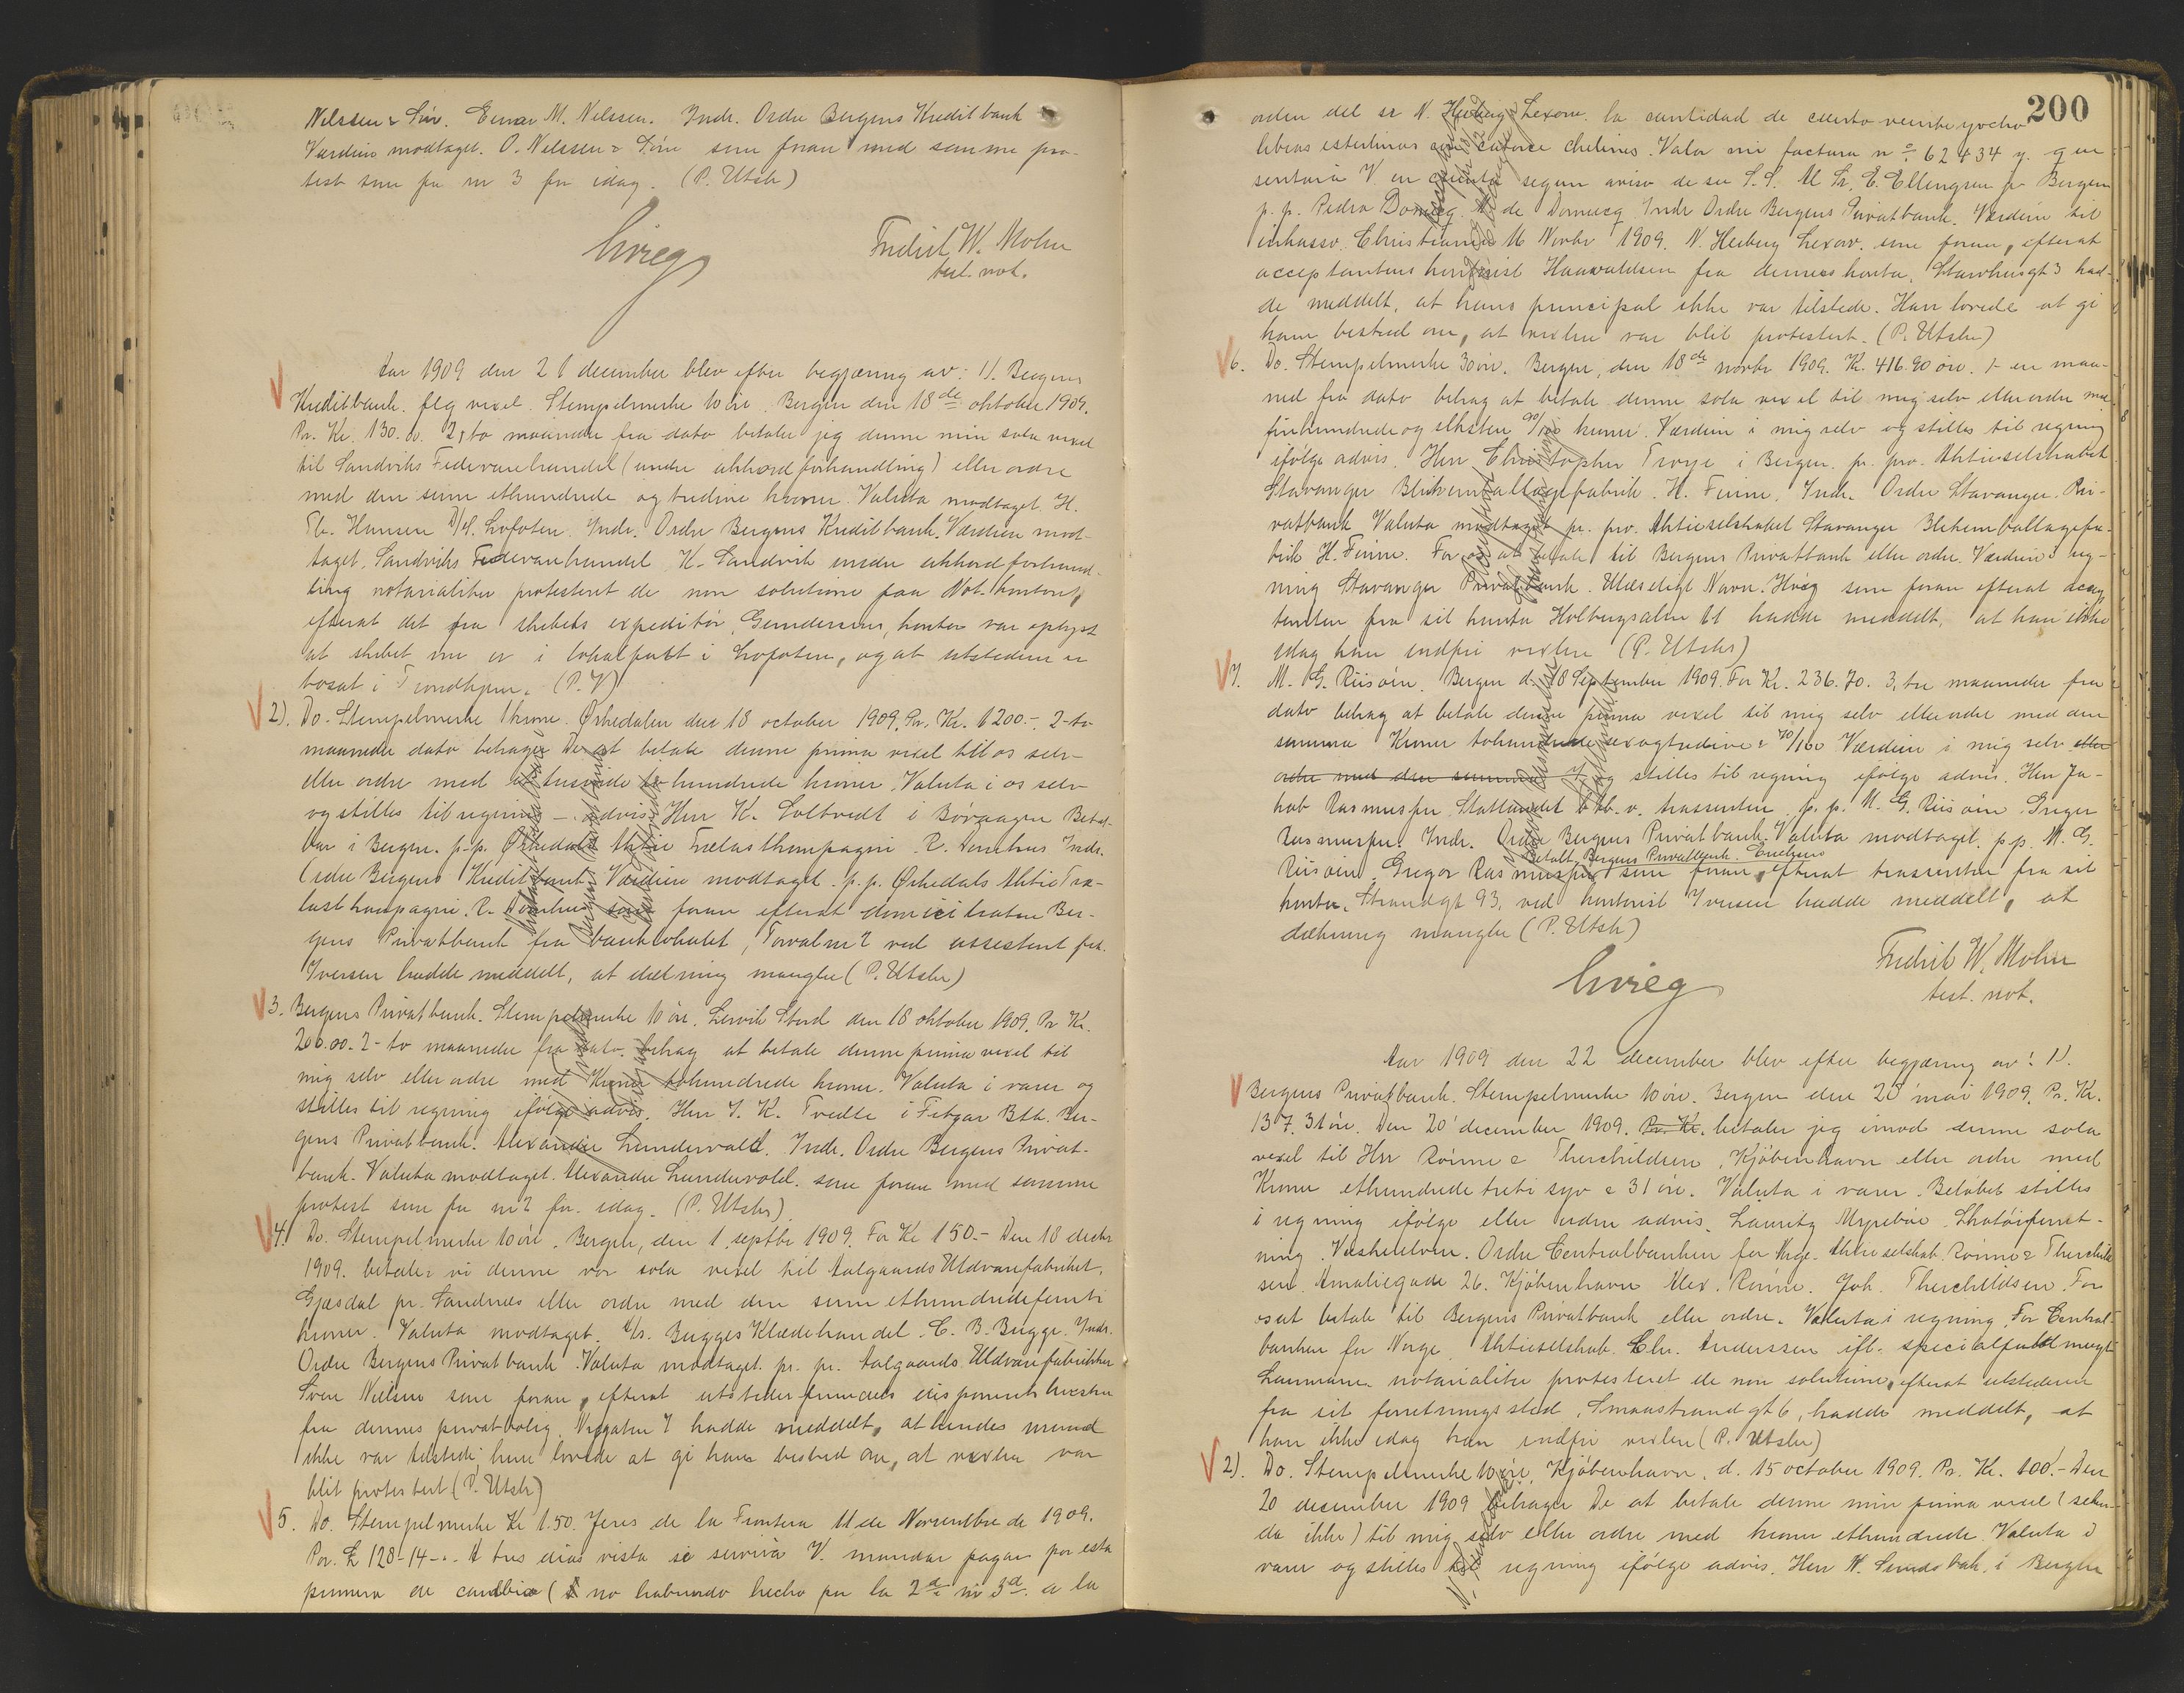 Nilssen & Søn. Einar M. Nilssen. Indr. Ordre Bergens Kreditbank
Værdien modtaget. O. Nilssen & Søn som foran med samme pro-
test som fra nr 3 for idag. (P. Utstr)
Fredrik W. Mohn
test. not.
Aar 1909 den 21 december blev efter begjæring av: 1). Bergens
Kreditbank. flg vexel. Stempelmerke 10 øre. Bergen den 18de oktober 1909.
Pr. Kr. 130.00. 2, to maaneder fra dato betaler jeg denne min sola vexel
til Sandviks Fedevarehandel (under akkordforhandling) eller ordre
med den sum ethundrede og tredive kroner. Valuta modtaget. H.
Hansen D/S. Lofoten. Indr. Ordre Bergens Kreditbank. Værdien mod-
taget. Sandviks Fedevarehandel K. Sandvik under akkordforhand-
ling notarialiter protesteret de non solutione paa Not. kontoret,
efterat det fra skibets expeditør, Gundersen, kontor var oplyst
at skibet nu er i lokalfart i Lofoten, og at utstederen er
bosat i Trondhjem. (P. V)
2). Do. Stempelmerke 1 krone. Ørkedalen den 18 october 1909. Pr. Kr. 1200.- 2-to
maaneder dato behager De at betale denne prima vexel til os selv
eller ordre med et tusinde to hundrede kroner. Valuta i os selv
og stilles til regning - advis. Herr K. Soltvedt i Børaagen Betal-
bar i Bergen. p.p. Ørkedals Aktie Trælastkompagni. R. Indr.
Ordre Bergens Kreditbank. Værdien modtaget. p.p. Ørkedals Aktie Træ-
lastkompagni. R. som foran efterat domiciliaten Ber-
gens Privatbank fra banklokalet, Torvalm 2 ved assistent frk.
Iversen hadde meddelt, at dækning mangler (P. Utstr)
3. Bergens Privatbank. Stempelmerke 10 øre. Lervik Stord den 18 oktober 1909. Pr Kr.
200.00. 2-to maaneder fra dato behag at betale denne prima vexel til
mig selv eller ordre med Kroner tohundrede kroner. Valuta i varer og
stilles til regning ifølge advis. Herr J. K. Tvedte i Fitjar Btb. Ber-
gens Privatbank. Alexander Lundervold. Indr. Ordre Bergens Privat-
bank. Valuta modtaget. Alexander Lundervold. som foran med samme
protest som fra nr 2 for idag. (P. Utstr)
4. Do. Stempelmerke 10 øre. Bergen, den 1. septbr 1909. For Kr 150.- Den 18 decbr
1909. betaler vi denne vor sola vexel til Aalgaards Uldvarefabriker,
Gjæsdal pr. Sandnes eller ordre med den sum ethundredefemti
kroner. Valuta modtaget. Brygges Klædehandel. C. B. Brygge. Indr.
Ordre Bergens Privatbank. Valuta modtaget. pr. pr. Aalgaards Uldvarefabrikker
Sven Nielsen som foran, efterat utsteder firmaets disponents hustru
fra dennes privatbolig, 7 hadde meddelt, at hendes mand
ikke var tilstede; hun lovede at gi ham besked om, at vexlen var
blit protestert (P. Utstr)
5. Do. Stempelmerke Kr 1.50. Jeres de la Frontera 11 de Noviembre de 1909.
Por. £ 128-14-.. A tres dias vista se servirá V. mandar pagar por esta
primera de cambio (no habiendo hecho por la 2da ni 3a. a la
200
orden del sr N. Heiberg Lexow. la cantidad de ciento veinteyocho
libras esterlinas con catorce chelines. Valor mi factura no. 62434 y. que
sentara V. en cuenta segun aviso de su S.S. Al Sr. E. Ellengren pr Bergen
p.p. Pedro Domecq. de Domecq Indr Ordre Bergens Privatbank. Værdien til
inkasso. Christiania 16 Novbr 1909. N. Heiberg Lexow. som foran, efterat
acceptantens kontorist Haavaldsen fra dennes kontor, 3 had-
de meddelt, at hans principal ikke var tilstede. Han lovede at gi
ham besked om, at vexlen var blit protestert. (P. Utstr)
6. Do. Stempelmerke 30 øre. Bergen, den 18de novbr 1909. Kr. 416.90 øre. 1- en maa-
ned fra dato behag at betale denne sola vexel til mig selv eller ordre med
firehundrede og seksten 90/100 kroner. Værdien i mig selv og stilles til regning
ifølge advis. Herr Christopher Troye i Bergen. pr. pro. Aktieselskabet
Stavanger Blikemballagefabrik. H. Finne. Indr. Ordre Stavanger Pri-
vatbank Valuta modtaget pr. pro. Aktieselskabet Stavanger Blikemballagefa-
brik H. Finne. For os at betale til Bergens Privatbank eller ordre. Værdien i reg-
ning Stavanger Privatbank. Ulæseligt Navn. som foran efterat accep
tanten fra sit kontor Holbergsalm 11 hadde meddelt, at han ikke
idag kan indfri vexlen (P. Utstr)
7. M. G. Riisøen. Bergen d. 18 September 1909. For Kr. 236.70. 3, tre maaneder fra
dato behag at betale denne prima vexel til mig selv eller ordre med den
summa Kroner tohundrede sexogtredive & 70/100 Værdien i mig selv eller
ordre med den summa og stilles til regning ifølge advis. Herr Ja-
kob Rasmussen, Stattlandet btb. v. trassenten. p.p. M. G. Riisøen. Gregor
Rasmussen. Indr. Ordre Bergens Privatbank. Valuta modtaget. p.p. M. G.
Betalt Bergens Privatbank.
Riisøen. Gregor Rasmussen som foran, efterat trassenten fra sit
kontor, Strandgt 93, ved kontorist Iversen hadde meddelt, at
dækning mangler (P. Utstr)
Fredrik W. Mohn
test. not.
Aar 1909 den 22 december blev efter begjæring av: 1).
Bergens Privatbank. Stempelmerke 10 øre. Bergen den 20 mai 1909. Pr. Kr.
137.31 øre. Den 20 december 1909. Pr. Kr. betaler jeg imod denne sola
vexel til Herr Rønne & Therchildsen, Kjøbenhavn eller ordre med
Kroner ethundrede treti syv & 31 øre. Valuta i varer. Beløbet stilles
i regning ifølge eller uden advis. Lauritz Myrebøe. Skotøiforret-
ning. Ordre Centralbanken for Norge. Aktieselskab. Rønne & Therchild
sen. Amaliegade 26. Kjøbenhavn Alex. Rønne. Joh. Therchildsen. For
os at betale til Bergens Privatbank eller ordre. Valuta i regning. For Central-
banken for Norge. Aktieselskab. Chr. Anderssen ifl. specialfuldmagt
Laumann notarialiter protesteret de non solutione, efterat utstederen
fra sit forretningssted, Smaastrandgt 6, hadde meddelt, at
han ikke idag kan indfri vexlen (P. Utstr)
2). Do. Stempelmerke 10 øre. Kjøbenhavn, d. 15 october 1909. Pr. Kr. 100.- Den
20 december 1909 behager De at betale denne min prima vexel (secun-
da ikke) til mig selv eller ordre med kroner ethundrede. Valuta i
varer og stilles til regning ifølge advis. Herr N. Sundsbak, i Bergen